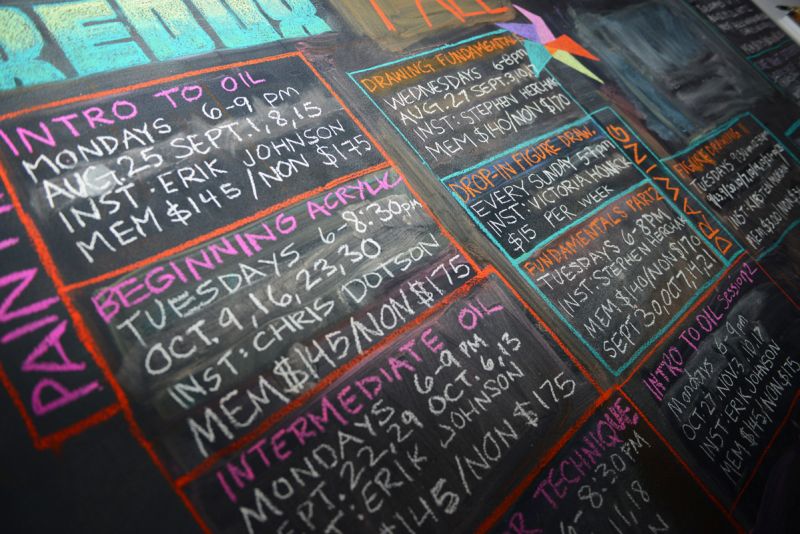 REDUX
FALL
PAINTI
INTRO TO OIL
MONDAYS 6-9 PM
AUG. 25 SEPT. 1, 8, 15
INST: ERIK JOHNSON
MEM $145/NON $175
BEGINNING ACRYLIC
TUESDAYS 6-8:30pm
OCT. 9, 16, 23, 30
INST: CHRIS DOTSON
MEM $145/NON $175
INTERMEDIATE OIL
MONDAYS 6-9 PM
SEPT. 22, 29 OCT. 6, 13
INST: ERIK JOHNSON
$145/NON $175
DRAWING
DRAWING FUNDAMENTALS
WEDNESDAYS 6-8pm
AUG. 27 SEPT. 3, 10, 17
INST: STEPHEN
MEM $140/NON $170
DROP-IN FIGURE DRAW.
EVERY SUNDAY
INST: VICTORIA
$15 PER WEEK
FUNDAMENTALS PART 2
TUESDAYS 6-8PM
INST: STEPHEN
MEM $140/NON $170
SEPT 30, OCT 7, 14, 21
TECHNIQUE
6-8:30PM
11, 18
INTRO TO OIL SESSION 2
MONDAYS 6-9pm
OCT 27 NOV 3, 10, 17
INST: ERIK JOHNSON
MEM $145/NON $175
TUESDAYS